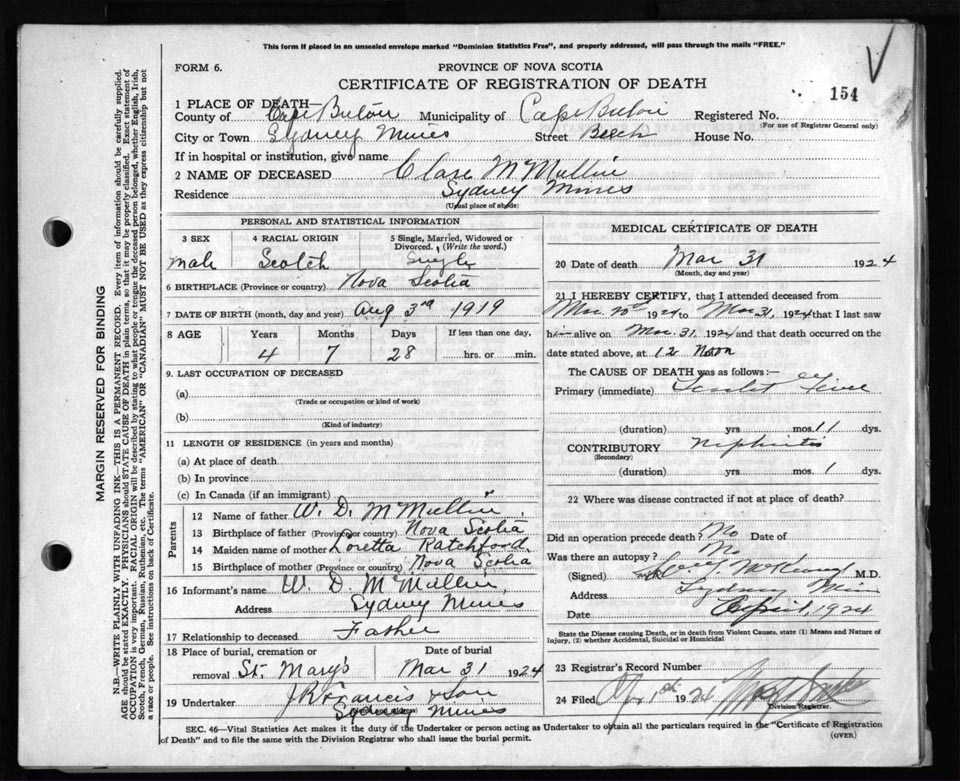 This form if placed in an unsealed envelope marked "Dominion Statistics Free", and properly addressed, will pass through the mails "FREE."
FORM 6.
PROVINCE OF NOVA SCOTIA
CERTIFICATE OF REGISTRATION OF DEATH
154
1 PLACE OF DEATH—
County of Cape Breton Municipality of Cape Breton Registered No.
(For use of Registrar General only)
City or Town Sydney Mines Street Beech House No.
If in hospital or institution, give name
2 NAME OF DECEASED Clare McMullin
Residence Sydney Mines
(Usual place of abode)
PERSONAL AND STATISTICAL INFORMATION
3 SEX 4 RACIAL ORIGIN 5 Single, Married, Widowed or Divorced. (Write the word.)
male Scotch Single
6 BIRTHPLACE (Province or country) Nova Scotia
7 DATE OF BIRTH (month, day and year) Aug 3rd 1919
8 AGE Years Months Days If less than one day,
4 7 28 hrs. or min.
9. LAST OCCUPATION OF DECEASED
(a)
(Trade or occupation or kind of work)
(b)
(Kind of industry)
11 LENGTH OF RESIDENCE (in years and months)
(a) At place of death
(b) In province
(c) In Canada (if an immigrant)
Parents
12 Name of father W. D. McMullin
13 Birthplace of father (Province or country) Nova Scotia
14 Maiden name of mother Loretta Ratchford
15 Birthplace of mother (Province or country) Nova Scotia
16 Informant's name W. D. McMullin
Address Sydney Mines
17 Relationship to deceased Father
18 Place of burial, cremation or removal St. Mary's
Date of burial Mar 31 1924
19 Undertaker J R Francis & Son
Sydney Mines
MEDICAL CERTIFICATE OF DEATH
20 Date of death Mar 31 1924
(Month, day and year)
21 I HEREBY CERTIFY, that I attended deceased from
1924 to Mar 31, 1924 that I last saw
him alive on Mar. 31, 1924 and that death occurred on the
date stated above, at 12 Noon
The CAUSE OF DEATH was as follows:—
Primary (immediate) Scarlet Fever
(duration) yrs mos. 11 dys.
CONTRIBUTORY Nephritis
(Secondary)
(duration) yrs mos. 1 dys.
22 Where was disease contracted if not at place of death?
Did an operation precede death? No Date of
Was there an autopsy? No
(Signed) M.D.
Address Sydney Mines
Date April 1, 1924
State the Disease causing Death, or in death from Violent Causes. state (1) Means and Nature of Injury, (2) whether Accidental, Suicidal or Homicidal
23 Registrar's Record Number
24 Filed Apr 1st 1924
Division Registrar.
SEC. 46—Vital Statistics Act makes it the duty of the Undertaker or person acting as Undertaker to obtain all the particulars required in the "Certificate of Registration
of Death" and to file the same with the Division Registrar who shall issue the burial permit.
(OVER)
MARGIN RESERVED FOR BINDING
N.B.—WRITE PLAINLY WITH UNFADING INK—THIS IS A PERMANENT RECORD. Every item of information should be carefully supplied.
AGE should be stated EXACTLY. PHYSICIANS should STATE CAUSE OF DEATH in plain terms, so that it may be properly classified. Exact statement of
OCCUPATION is very important. RACIAL ORIGIN will be described by stating to what people or tongue the deceased person belonged, whether English, Irish,
Scotch, French, German, Russian, Ruthenian, etc. The terms "AMERICAN" OR "CANADIAN" MUST NOT BE USED as they express citizenship but not
a race or people. See instructions on back of Certificate.